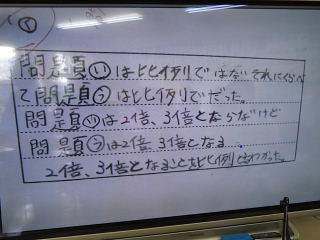 問題ⓘは比例りではないそれにくらべ
て問題㋒は比例りでだった。
問題㋑は2倍、3倍とならないけど
問題㋒は2倍、3倍となる
2倍、3倍となることを比例とわかった。